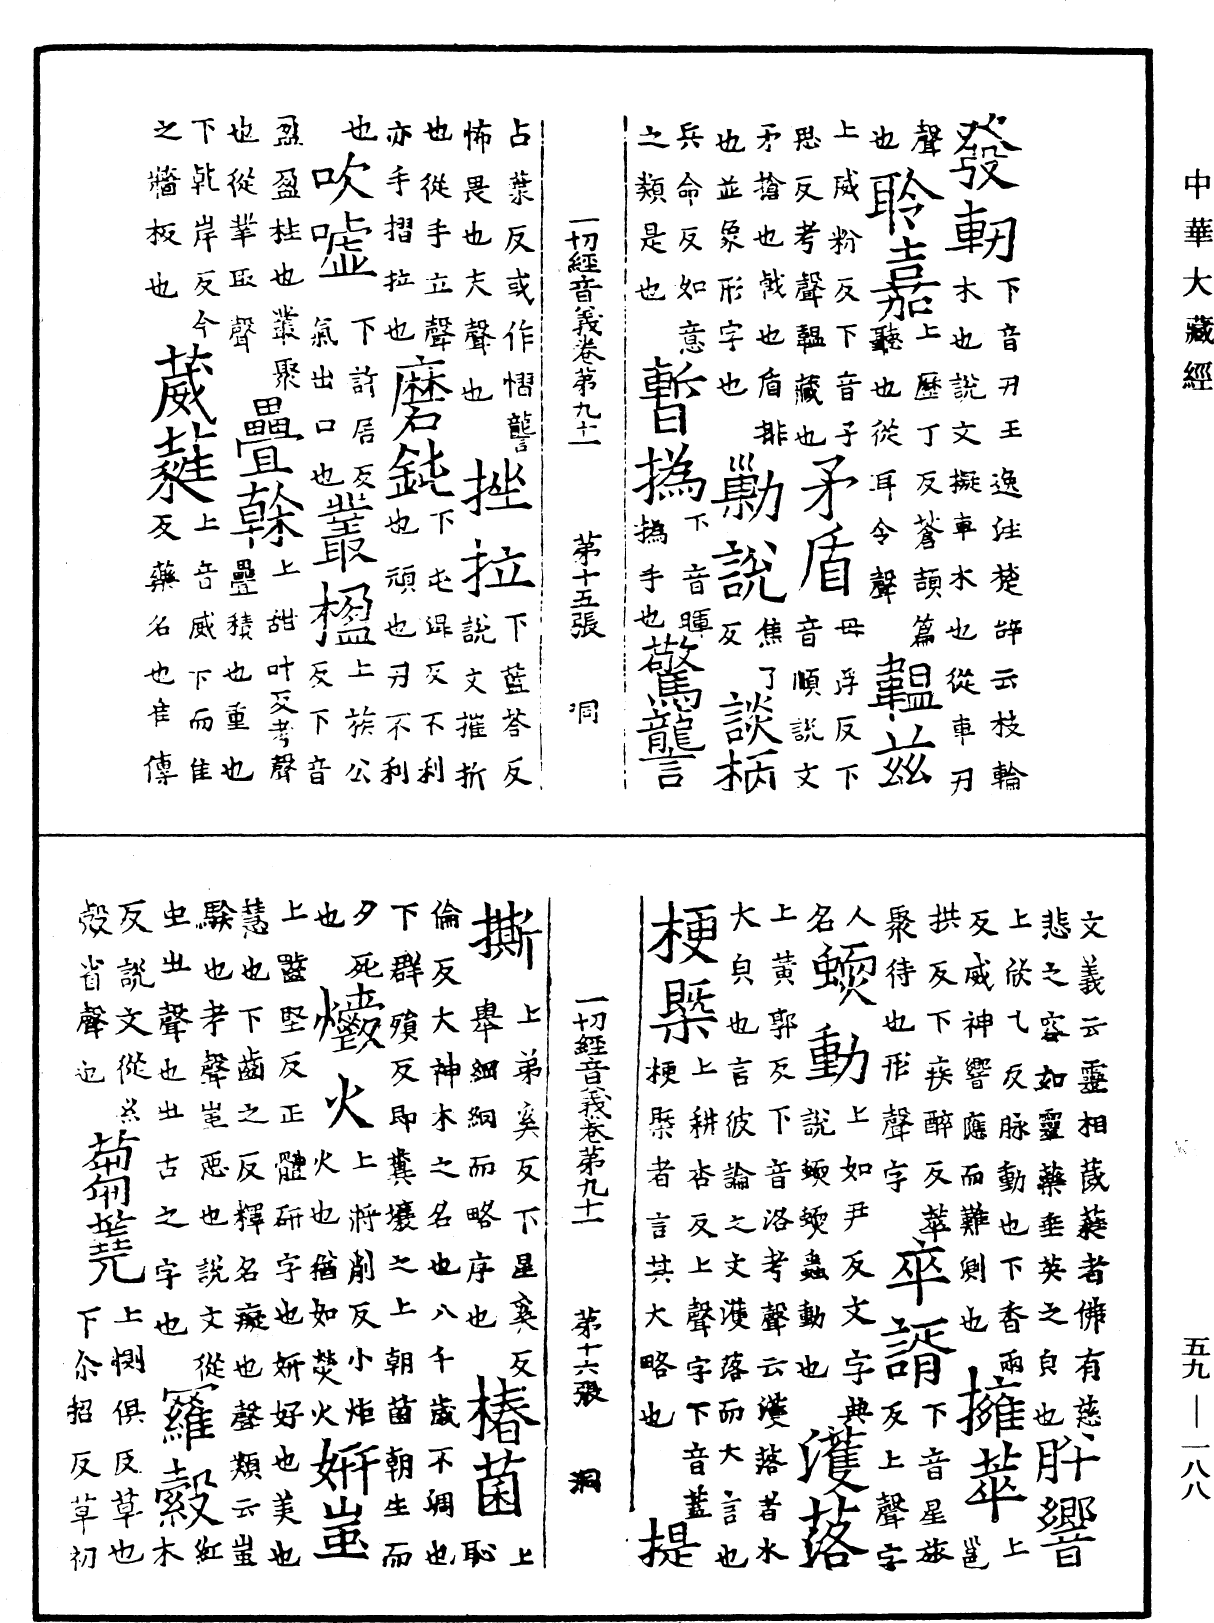 中華大藏經
發軔下音刃王逸注楚辝云枝輪木也說文擬車木也從車刃
聲也聆嘉上歷丁反蒼頡篇聽也從耳令聲韞茲
上威粉反下音子思反考聲韞藏也矛盾母浮反下音順說文
矛搶也戟也盾排也並象形字也勦說焦了反談柄
兵命反如意之類是也暫撝下音暉撝手也驚讋
一切經音義卷第九十一 第十五張 洞
占葉反或作慴讋怖畏也夫聲也挫拉下藍荅反說文摧折
也從手立聲亦手摺拉也磨鈍下屯混反不利也頑也刃不利
也吹噓下許居反氣出口也叢楹上族公反下音
盈盈柱也叢聚也從丵取聲疊榦上甜叶反考聲疊積也重也
下乹岸反今之牆板也葳蕤上音威下而隹反藥名也隹傳
文義云靈相葳蕤者佛有慈悲之容如靈藥垂英之皃也肸響
上欣乞反脉動也下香兩反威神響應而難側也擁萃上邕
拱反下疾醉反萃聚待也形聲字卒諝下音星旅反上聲字
人名蝡動上如尹反文字典說蝡蝡蟲動也濩落
上黃郭反下音洛考聲云濩落者水大皃也言彼論之文濩落而大言也
梗槩上耕杏反上聲字下音蓋梗槩者言其大略也提
一切經音義卷第九十一 第十六張 洞
撕上弟奚反下星奚反舉細綱而略序也椿菌上恥
倫反大神木之名也八千歲不凋也下群殞反即糞壤之上朝菌朝生而
夕死也爝火上將削反小炬火也猶如熒火妍蚩
上齧堅反正體研字也妍好也美也慧也下齒之反釋名癡也聲類云蚩
騃也考聲蚩惡也說文從虫㞢聲也㞢古之字也羅縠紅木
反說文從糸殼省聲也蒭蕘上惻俱反草也下尒招反草初
五九—一八八